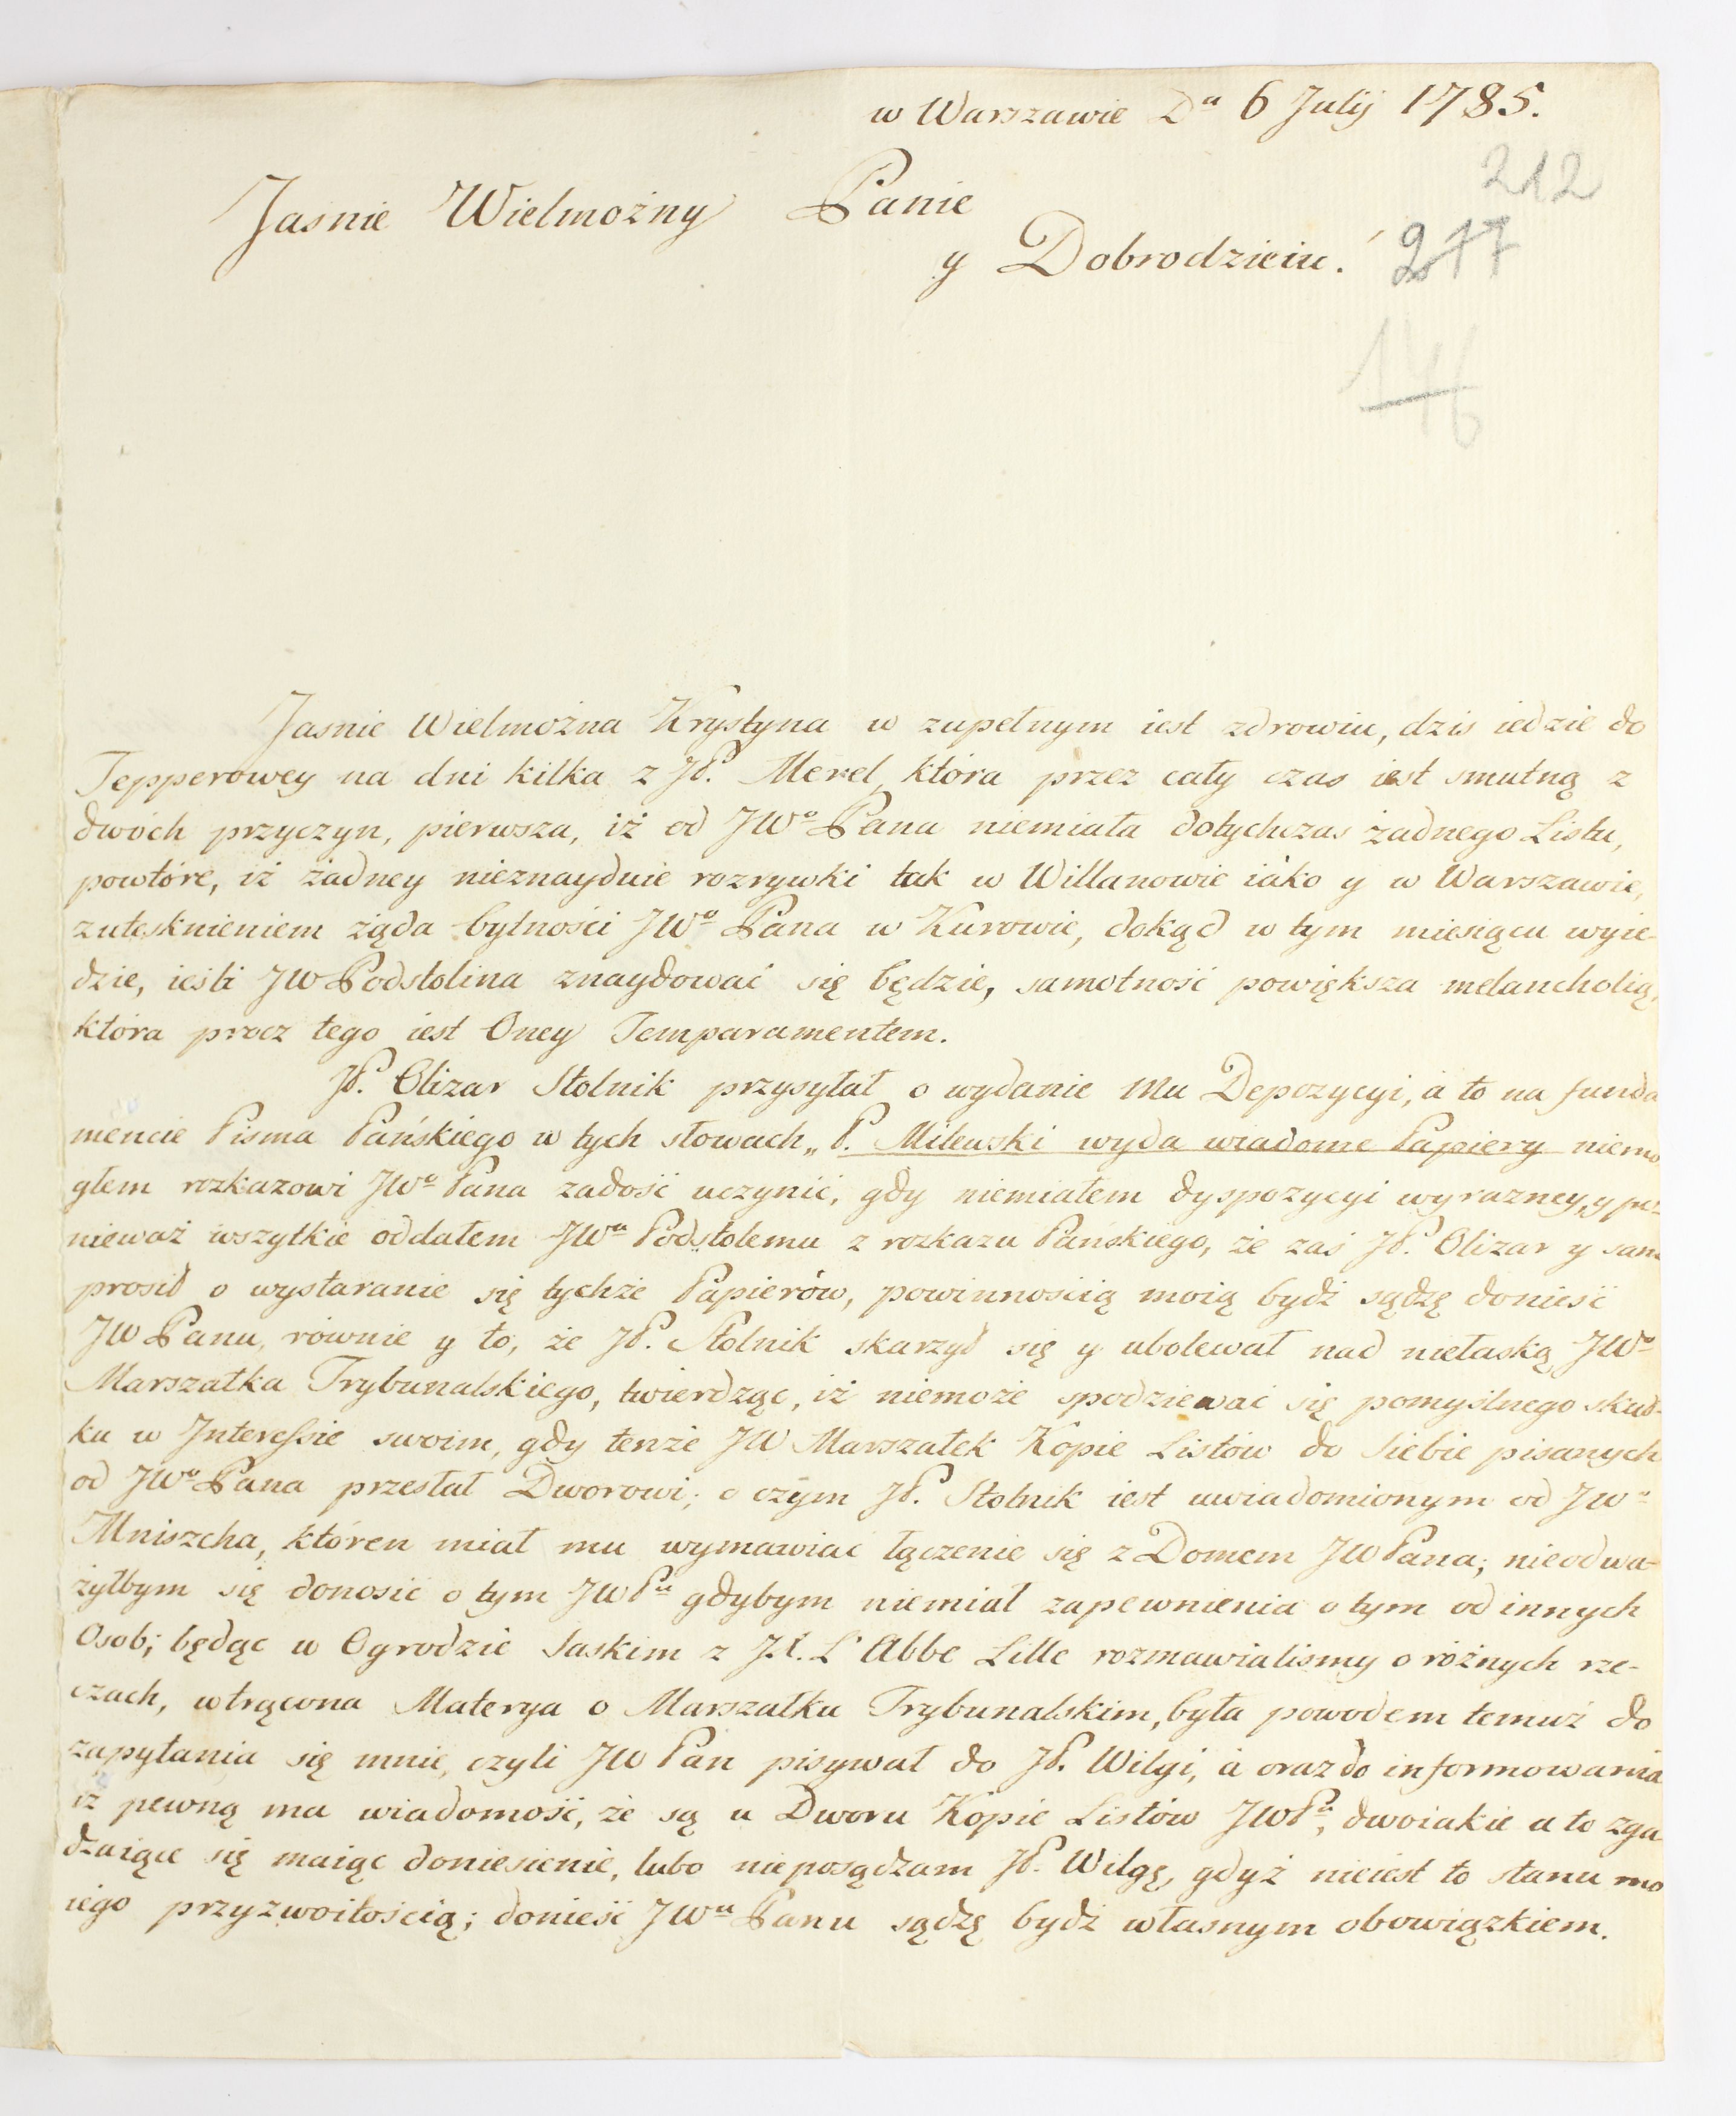 w Warszawie Da 6 Julij 1785.
212
Jasnie Wielmożny Panie
y Dobrodzieiu.
277
146
Jasnie Wielmożna Krystyna w zupełnym iest zdrowiu, dzis iedzie do
Tepperowey na dni kilka z JP. Merel, która przez cały czas iest smutną z
dwóch przyczyn, pierwsza, iż od JWo Pana niemiała dotychczas żadnego Listu,
powtóre, iż żadney nieznayduie rozrywki tak w Willanowie iáko y w Warszawie,
zutęsknieniem żąda bytności JWo Pana w Kurowie, dokąd w tym miesiącu wyie-
dzie, ieśli JW Podstolina znaydować się będzie, samotność powiększa melancholią,
która procz tego iest Oney Temparamentem.
JP. Olizar Stolnik przysyłał o wydanie Mu Depozycyi, á to na funda
mencie Pisma Pańskiego w tych słowach „P. Milewski wyda wiadome Papiery niemo
głem rozkazowi JWo Pana zadość uczynić, gdy niemiałem dyspozycyi wyrazney, y po-
nieważ wszytkie oddałem JWu Podstolemu z rozkazu Pańskiego, że zaś JP. Olizar y sam
prosił o wystaranie się tychże Papierów, powinnością moią bydź sądzę donieść
JW Panu, równie y to, że JP. Stolnik skarzył się y ubolewał nad niełaską JWo
Marszałka Trybunalskiego, twierdząc, iż niemoże spodziewać się pomyślnego skut-
ku w Interessie swoim, gdy tenże JW Marszałek Kopie Listów do siebie pisanych
od JWo Pana przesłał Dworowi; o czym JP. Stolnik iest uwiadomionym od JWo
Mniszcha, któren miał mu wymawiać łączenie się z Domem JW Pana; nieodwa-
żyłbym się donosić o tym JWPu gdybym niemiał zapewnienia o tym od innych
Osob; będąc w Ogrodzie Saskim z JX. L'Abbe Lille rozmawialismy o różnych rze-
czach, wtrącona Materya o Marszałku Trybunalskim, była powodem temuż do
zapytania się mnie, czyli JW Pan pisywał do JP. Wilgi, á oraz do informowania
iż pewną ma wiadomość, że są u Dworu Kopie Listów JWPa, dwoiakie a to zga
dzaiące się maiąc doniesienie, lubo nieposądzam JP. Wilgę, gdyż nieiest to stanu mo
iego przyzwoitością; donieść JWu Panu sądzę bydź własnym obowiązkiem.